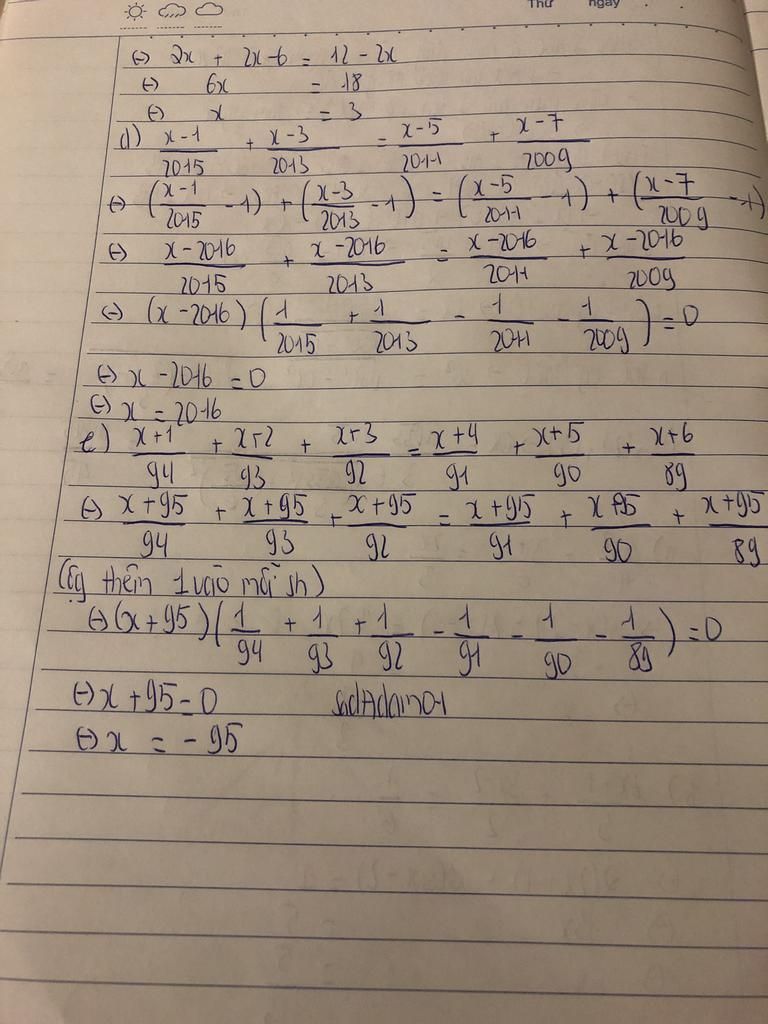 Thứ ngày
(=) 2x + 2x-6 = 12 - 2x
(=) 6x = 18
(=) x = 3
d) \frac{x-1}{2015} + \frac{x-3}{2013} = \frac{x-5}{2011} + \frac{x-7}{2009}
(=) (\frac{x-1}{2015} - 1) + (\frac{x-3}{2013} - 1) = (\frac{x-5}{2011} - 1) + (\frac{x-7}{2009} - 1)
(=) \frac{x-2016}{2015} + \frac{x-2016}{2013} = \frac{x-2016}{2011} + \frac{x-2016}{2009}
(=) (x-2016) (\frac{1}{2015} + \frac{1}{2013} - \frac{1}{2011} - \frac{1}{2009}) = 0
(=) x - 2016 = 0
(=) x = 2016
e) \frac{x+1}{94} + \frac{x+2}{93} + \frac{x+3}{92} = \frac{x+4}{91} + \frac{x+5}{90} + \frac{x+6}{89}
(=) \frac{x+95}{94} + \frac{x+95}{93} + \frac{x+95}{92} = \frac{x+95}{91} + \frac{x+95}{90} + \frac{x+95}{89}
thêm 1 vào mỗi sh)
(=) (x+95) (\frac{1}{94} + \frac{1}{93} + \frac{1}{92} - \frac{1}{91} - \frac{1}{90} - \frac{1}{89}) = 0
(=) x + 95 = 0
(=) x = - 95